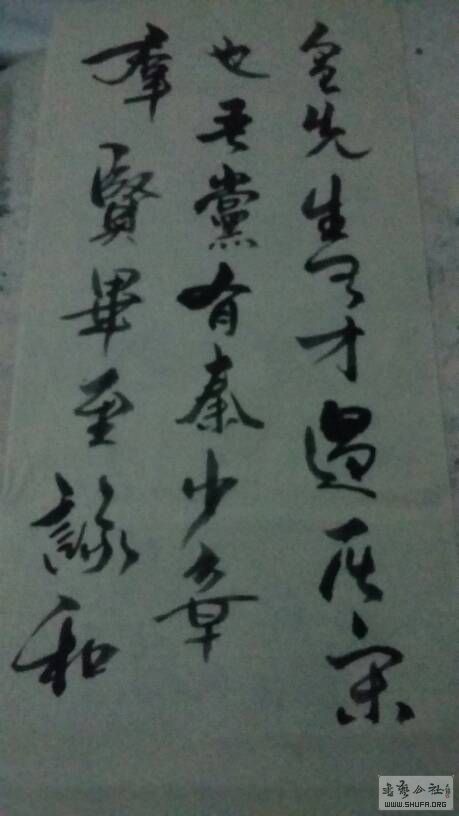 皇先生有才過屈宋
也吾黨有秦少章
羣賢畢至詠和
书法公社
WWW.SHUFA.ORG